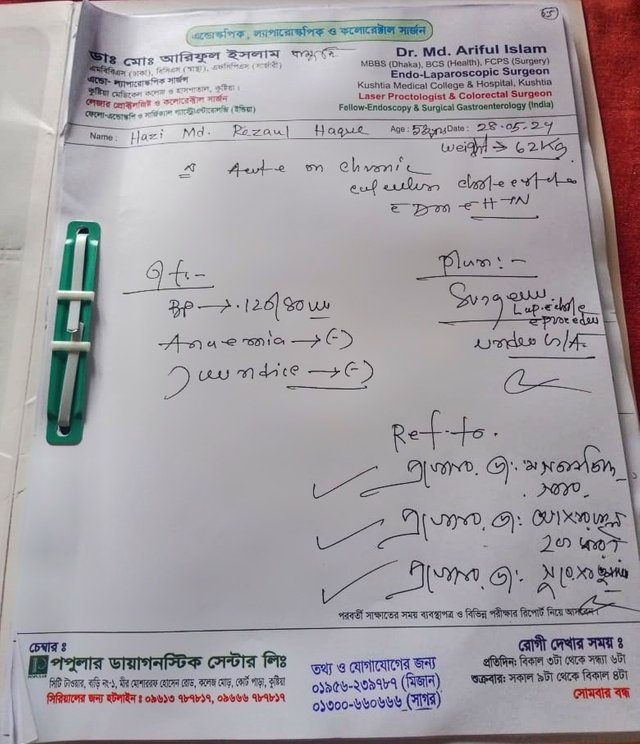 65
এন্ডোস্কপিক, ল্যাপারোস্কপিক ও কলোরেক্টাল সার্জন
ডাঃ মোঃ আরিফুল ইসলাম
এমবিবিএস (ঢাকা), বিসিএস (স্বাস্থ্য), এফসিপিএস (সার্জারী)
এন্ডো- ল্যাপারোস্কপিক সার্জন
কুষ্টিয়া মেডিকেল কলেজ ও হাসপাতাল, কুষ্টিয়া।
লেজার প্রোক্টলজিষ্ট ও কলোরেক্টাল সার্জন
ফেলো-এন্ডোস্কপি ও সার্জিক্যাল গ্যাস্ট্রোএন্টারোলজি (ইন্ডিয়া)
Dr. Md. Ariful Islam
MBBS (Dhaka), BCS (Health), FCPS (Surgery)
Endo-Laparoscopic Surgeon
Kushtia Medical College & Hospital, Kushtia
Laser Proctologist & Colorectal Surgeon
Fellow-Endoscopy & Surgical Gastroenterology (India)
Name: Hazi Md. Rezaul Haque Age: 58yrs Date: 28-05-24
weight → 62 Kg
Acute on chronic
calculus
c DM c HTN
O/E:-
BP → 120/80
Anaemia → (-)
Jaundice → (-)
Plan:-
Surgery
Lap. chole
under G/A.
Ref. to.
প্রফেসর ডা:
প্রফেসর ডা:
প্রফেসর ডা:
পরবর্তী সাক্ষাতের সময় ব্যবস্থাপত্র ও বিভিন্ন পরীক্ষার রিপোর্ট নিয়ে আসবেন।
চেম্বার ঃ
পপুলার ডায়াগনস্টিক সেন্টার লিঃ
সিটি টাওয়ার, বাড়ি নং-১, মীর মোশাররফ হোসেন রোড, কলেজ মোড়, কোর্ট পাড়া, কুষ্টিয়া
সিরিয়ালের জন্য হটলাইন ঃ ০৯৬১৩ ৭৮৭৮১৭, ০৯৬৬৬ ৭৮৭৮১৭
তথ্য ও যোগাযোগের জন্য
০১৯৫৬-২৩৯৭৮৭ (মিজান)
০১৩০০-৬৬০৬৬৬ (সাগর)
রোগী দেখার সময় ঃ
প্রতিদিন: বিকাল ৩টা থেকে সন্ধ্যা ৬টা
শুক্রবার: সকাল ৯টা থেকে বিকাল ৪টা
সোমবার বন্ধ